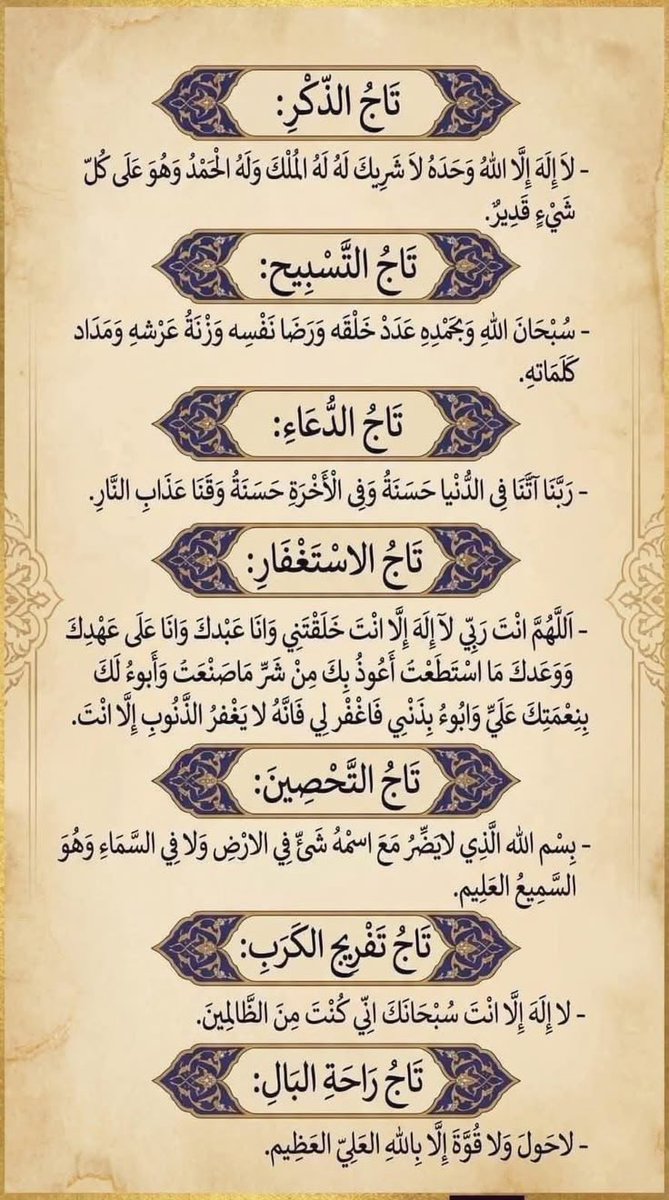 تَاجُ الذِّكْرِ:
- لاَ إِلَهَ إِلَّا اللهُ وَحَدَهُ لاَ شَرِيكَ لَهُ لَهُ المُلْكَ وَلَهُ الْحَمْدُ وَهُوَ عَلَى كُلّ
شَيْءٍ قَدِيرٌ.
تَاجُ التَّسْبِيح:
- سُبْحَانَ اللهِ وَبِحَمْدِهِ عَدَدْ خَلْقَه وَرَضَا نَفْسِه وَزْنَةُ عَرْشهِ وَمَدَاد
كَلَمَاتهِ.
تَاجُ الدُّعَاءِ:
- رَبَّنَا آتَّنَا فِى الدُّنْيا حَسَنَةُ وَفِى الْأَخْرَةِ حَسَنَةُ وَقَنَا عَذَابِ النَّارِ.
تَاجُ الاسْتَغْفَارِ:
- اَللَّهُمَّ انْتَ رَبِّي لآ إِلَهَ إِلَّا انْتَ خَلَقْتَنِي وَانَا عَبْدكَ وَانَا عَلَى عَهْدِكَ
وَوَعَدكَ مَا اسْتَطَعْتَ أَعُوذُ بِكَ مِنْ شَرِّ مَاصَنْعَتَ وَأَبوءُ لَكَ
بِنِعْمَتِكَ عَلَيِّ وَابُوءُ بِذَنْبِي فَاغْفْر لِي فَانَّهُ لا يَغْفرُ الذَّنُوبِ إِلَّا انْتَ.
تَاجُ التَّحْصِينَ:
- بِسْم الله الَّذِي لايَضِّرُ مَعَ اسمْهُ شَئّ فِي الارْضِ وَلا فِي السَّمَاءِ وَهُوَ
السَّمِيعُ العَلِيم.
تَاجُ تَفْرِيج الكَرَبِ:
- لا إِلَهَ إِلَّا انْتَ سُبْحَانَكَ اِنِّي كُنْتَ مِنَ الظَّالِمِينَ.
تَاجُ رَاحَةِ البَالِ:
- لاحَولَ وَلا قُوَّةَ إِلَّا بِاللهِ العَلِيّ العَظِيم.